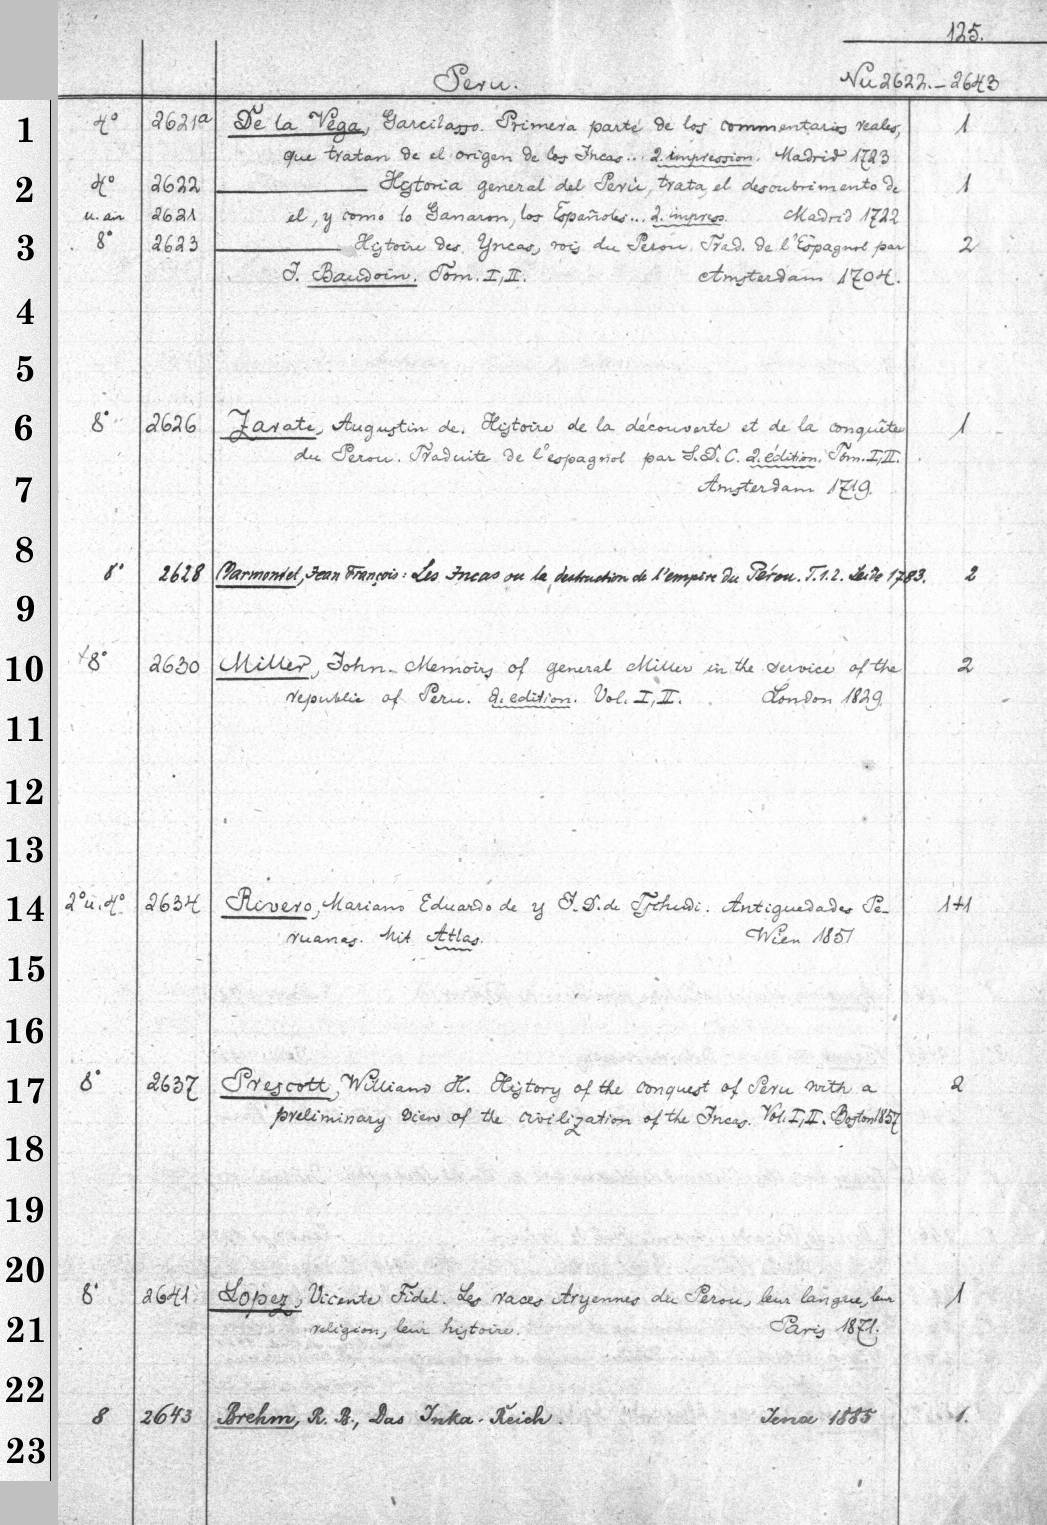 125.
Peru. Nu 2622.-2643
1 4° 2621a De la Vega, Garcilasso. Primera parte de los commentarios reales, 1
que tratan de el origen de los Incas... 2. impression. Madrid 1723
2 4° 2622 ——— Historia general del Perù, trata, el descubrimento de 1
u. an 2621 el, y como lo Ganaron, los Españoles... 2. impress. Madrid 1722
3 8° 2623 ——— Histoire des Yncas, rois du Perou. Trad. de l'Espagnol par 2
J. Baudoin. Tom. I, II. Amsterdam 1704.
4
5
6 8° 2626 Zarate, Augustin de. Histoire de la découverte et de la conquête 1
du Perou. Traduite de l'espagnol par S. D. C. 2. édition. Tom. I, II.
7 Amsterdam 1719.
8
8° 2628 Marmontel, Jean François: Les Incas ou la destruction de l'empire du Pérou. T. 1. 2. Leide 1783. 2
9
10 +8° 2630 Miller, John. Memoirs of general Miller in the service of the 2
republic of Peru. 2. edition. Vol. I, II. London 1829.
11
12
13
14 2° u. 4° 2634 Rivero, Mariano Eduardo de y J. D. de Tschudi. Antiguedades Pe- 1+1
ruanas. Mit Atlas. Wien 1851
15
16
17 8° 2637 Prescott, William H. History of the conquest of Peru with a 2
preliminary view of the civilization of the Incas. Vol. I, II. Boston 1857
18
19
20
8° 2641 Lopez, Vicente Fidel. Les races Aryennes du Perou, leur langue, leur 1
21 religion, leur histoire. Paris 1871.
22
8 2643 Brehm, R. B., Das Inka-Reich. Jena 1885 1.
23